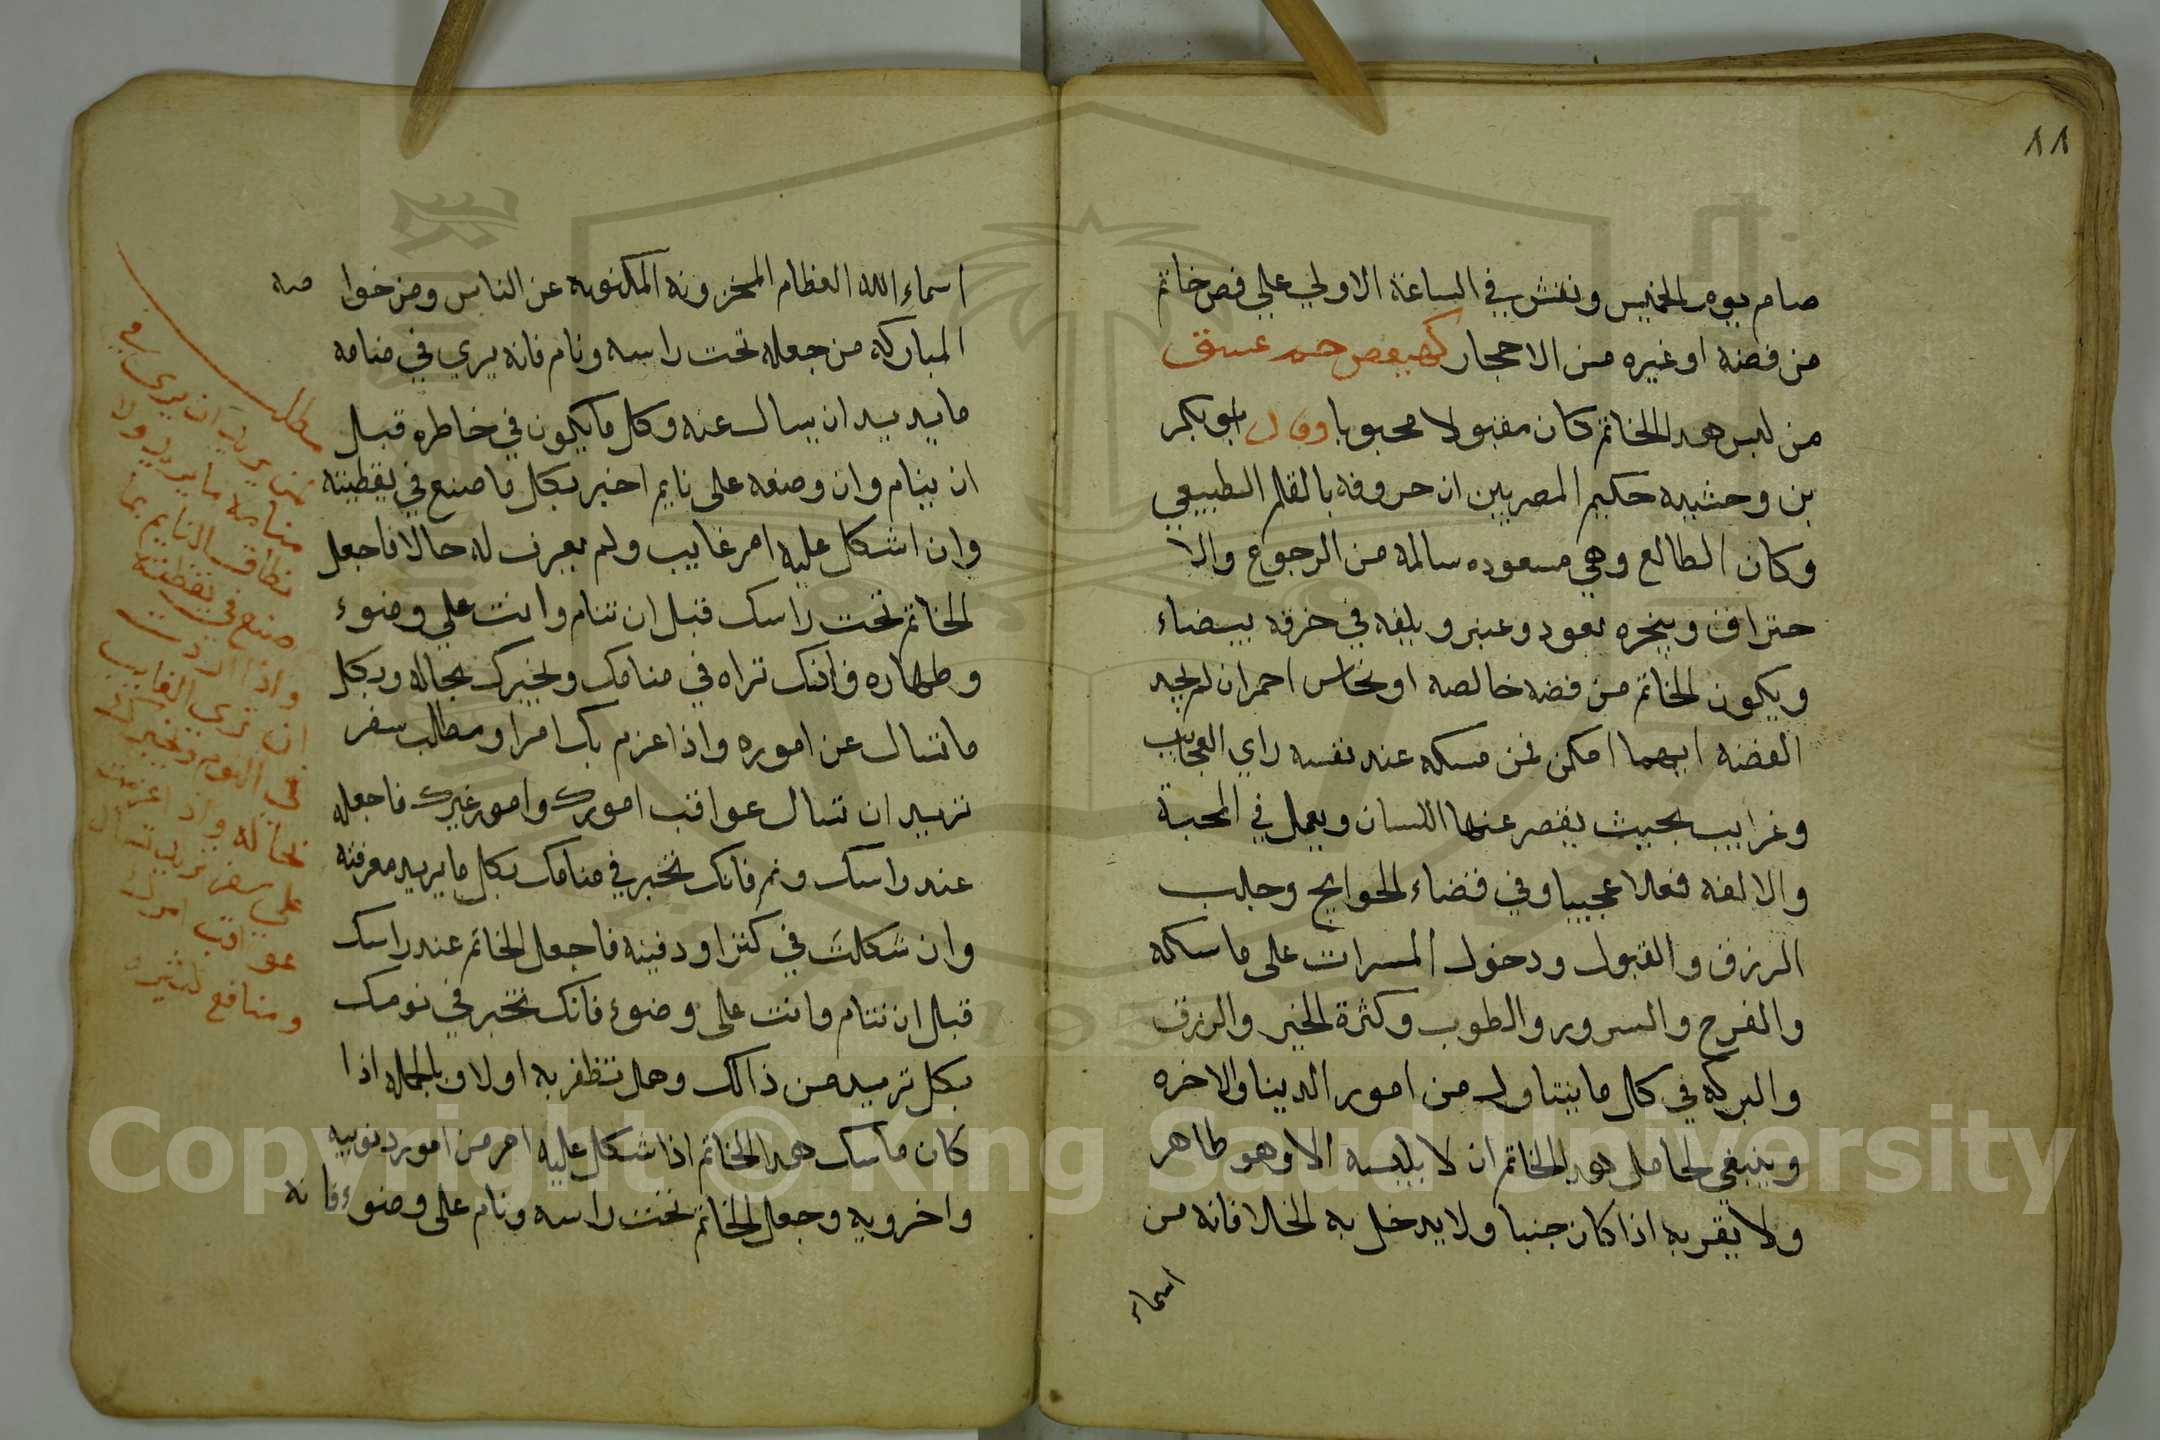 ٨٨
صام يوم الخميس ونقش في الساعة الاولي علي فص خاتم
من فضه او غيره من الاحجار كهيعص حم عسق
من لبس هدا الخاتم كان مقبولا محبوبا وقال ابو بكر
بن وحشيه حكيم المصريين ان حروفه بالقلم الطبيعي
وكان الطالع وهي مسعوده سالمه من الرجوع والا
حتراق ويبخره بعود وعنبر ويلفه في خرقه بيضاء
ويكون الخاتم من فضه خالصه او نحاس احمر ان لم يجد
الفضه ايهما امكن فمن مسكه عند نفسه راي العجايب
وغرايب بحيث يقصر عنها اللسان ويعمل في المحبة
والالفه فعلا عجيبا وفي قضاء الحوايج وجلب
الرزق والقبول ودخول المسرات على ماسكه
والفرح والسرور والطوب وكثرة الخير والرزق
والبركه في كل ما يتناول من امور الدينا والاخره
وينبغي لحامل هدا الخاتم ان لا يلبسه الا وهو طاهر
ولا يقربه اذا كان جنبا ولا يدخل به الخلا فانه من
اسماء
اسماء الله العظام المخزونه المكنونه عن الناس ومن خوا صه
المباركه من جعله تحت راسه ونام فانه يري في منامه
ما يريد ان يسال عنه وكل ما يكون في خاطره قبل
ان ينام وان وضعه على نايم اخبر بكل ما صنع في يقظيته
وان اشكل عليه امر غايب ولم يعرف له حالا فاجعل
الخاتم تحت راسك قبل ان تنام وانت علي وضوء
وطهاره فانك تراه في منامك ويخبرك بحاله وبكل
ما تسال عن اموره واذا عزم بك امرا ومطالب سفر
تريد ان تسال عواقب امورك وامور غيرك فاجعله
عند راسك ونم فانك تخبر في منامك بكل ما يريد معرفته
وان شكلت في كنز او دفينه فاجعل الخاتم عند راسك
قبل ان تنام وانت على وضوء فانك تخبر في نومك
بكل تريد من ذالك وهل تظفر به اولا وبالجمله اذا
كان ماسك هدا الخاتم اذا شكل عليه امر من امور دنوييه
واخرويه وجعل الخاتم تحت راسه ونام على وضوء فا نه
مطلب
لمن يريد ان يري في
منامه ما يريد ولا
نطاق النايم بما
صنع في يقظتته
واذا اردت
ان تري الغايب
في النوم ويخبرك
بحاله واذا عزمت
علي سفر تريد تسال
عواقب امرك
ومنافع كثيره
Copyright © King Saud University